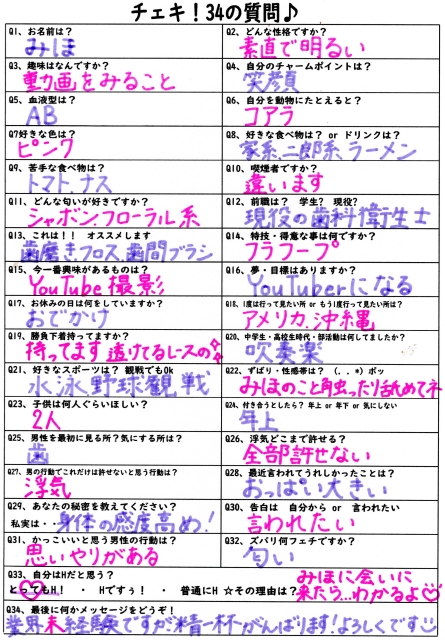 チェキ！34の質問♪
Q1、お名前は？
みほ
Q2、どんな性格ですか？
素直で明るい
Q3、趣味はなんですか？
動画をみること
Q4、自分のチャームポイントは？
笑顔
Q5、血液型は？
AB
Q6、自分を動物にたとえると？
コアラ
Q7好きな色は？
ピンク
Q8、好きな食べ物は？ or ドリンクは？
家系、二郎系、ラーメン
Q9、苦手な食べ物は？
トマト、ナス
Q10、喫煙者ですか？
違います
Q11、どんな匂いが好きですか？
シャボンフローラル系
Q12、前職は？ 学生？ 現役？
現役の歯科衛生士
Q13、これは！！ オススメします
歯磨きフロス、歯間ブラシ
Q14、特技・得意な事は何ですか？
フラフープ
Q15、今一番興味があるものは？
YouTube撮影
Q16、夢・目標はありますか？
YouTuberになる
Q17、お休みの日は何をしていますか？
おでかけ
Q18、1度は行って見たい所 or もう1度行って見たい所は？
アメリカ、沖縄
Q19、勝負下着持ってますか？
持ってます 透けてるレースの☆
Q20、中学生・高校生時代・部活動は何してましたか？
吹奏楽
Q21、好きなスポーツは？ 観戦でもOk
水泳、野球観戦
Q22、ずばり・性感帯は？ （．．*）ポッ
みほのこと触ったり舐めてネ
Q23、子供は何人ぐらいほしい？
2人
Q24、付き合うとしたら？ 年上 or 年下 or 気にしない
年上
Q25、男性を最初に見る所？気にする所は？
歯
Q26、浮気どこまで許せる？
全部許せない
Q27、男の行動でこれだけは許せないと思う行動は？
浮気
Q28、最近言われてうれしかったことは？
おっぱい大きい
Q29、あなたの秘密を教えてください？
私実は・・身体の感度高め！
Q30、告白は 自分から or 言われたい
言われたい
Q31、かっこいいと思う男性の行動は？
思いやりがある
Q32、ズバリ何フェチですか？
匂い
Q33、自分はHだと思う？
とってもH！ ・ Hですぅ！ ・ 普通にH ☆その理由は？
みほに会いに
来たら…わかるよ♡
Q34、最後に何かメッセージをどうぞ！
業界未経験ですが精一杯がんばります！よろしくです